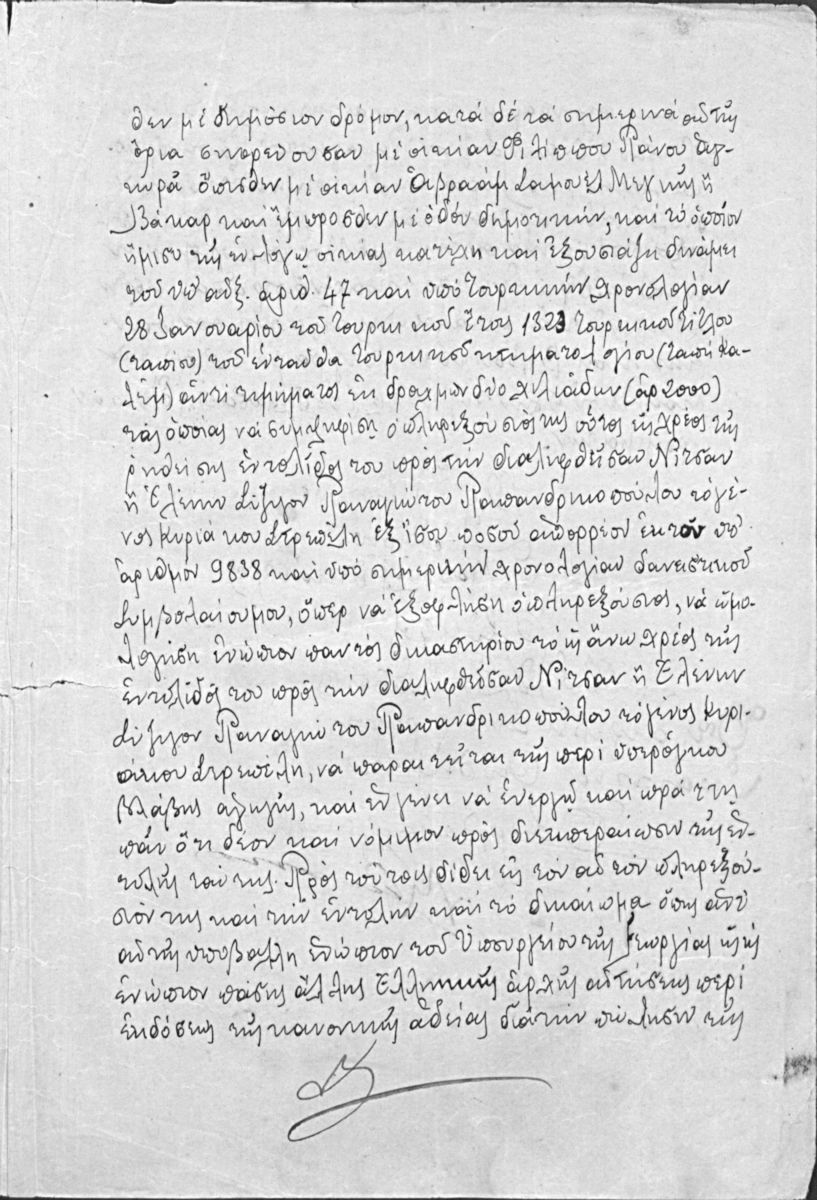 θεν μέ δημόσιον δρόμον, κατά δέ τά σημερινά αὐτῆς
ὅρια συνορεύουσαν μέ οἰκίαν Φιλίππου Πάνου
ὄπισθεν μέ οἰκίαν Ἀβραάμ Σαμουέλ Μεγκῆς ἤ
Βάκαρ καί ἔμπροσθεν μέ ὁδόν δημοτικήν, καί τό ὁποῖον
ἥμισυ τῆς ἐν λόγῳ οἰκίας κατέχη καί ἐξουσιάζη δυνάμει
τοῦ ὑπ' αὔξ. ἀριθ. 47 καί ὑπό τουρκικήν χρονολογίαν
28 Ἰανουαρίου τοῦ τουρκικοῦ ἔτους 1323 τουρκικοῦ τίτλου
(ταπίου) τοῦ ἐνταῦθα τουρκικοῦ κτηματολογίου (ταπή Κα-
λέμ) ἀντί τιμήματος ἐκ δραχμῶν δύο χιλιάδων (δρ 2000)
τάς ὁποίας νά συμψηφίσῃ ὁ πληρεξούσιός της οὗτος εἰς χρέος τῆς
ρηθείσης ἐντολίδος του πρός τήν διαληφθεῖσαν Νίτσαν
ἤ Ἑλένην σύζυγον Παναγιώτου Παπανδρικοπούλου τό γέ-
νος Κυριάκου Στρεπέλη ἐξ ἴσου ποσοῦ ἀπορρέον ἐκ τοῦ ὑπ'
ἀριθμόν 9838 καί ὑπό σημερινήν χρονολογίαν δανειστικοῦ
συμβολαίου μου, ὅπερ νά ἐξοφλήση ὁ πληρεξούσιος, νά ὡμο-
λογήση ἐνώπιον παντός δικαστηρίου τό ὡς ἄνω χρέος τῆς
ἐντολίδος του πρός τήν διαληφθεῖσαν Νίτσαν ἤ Ἑλένην
σύζυγον Παναγιώτου Παπανδρικοπούλου τό γένος Κυρι-
άκου Στρεπέλη, νά παραιτεῖται τῆς περί ὑπερόγκου
βλάβης ἀγωγῆς, καί ἐν γένει νά ἐνεργῇ καί πράττῃ
πᾶν ὅτι δέον καί νόμιμον πρός διεκπεραίωσιν τῆς ἐν-
τολῆς ταύτης. Πρός τούτοις δίδει εἰς τόν αὐτόν πληρεξού-
σιόν της καί τήν ἐντολήν καί τό δικαίωμα ὅπως ἀντ'
αὐτῆς ὑποβάλλη ἐνώπιον τοῦ Ὑπουργείου τῆς Γεωργίας ὡς καί
ἐνώπιον πάσης ἄλλης Ἑλληνικῆς ἀρχῆς αἰτήσεις περί
ἐκδόσεως τῆς κανονικῆς ἀδείας διά τήν πώλησιν τῆς